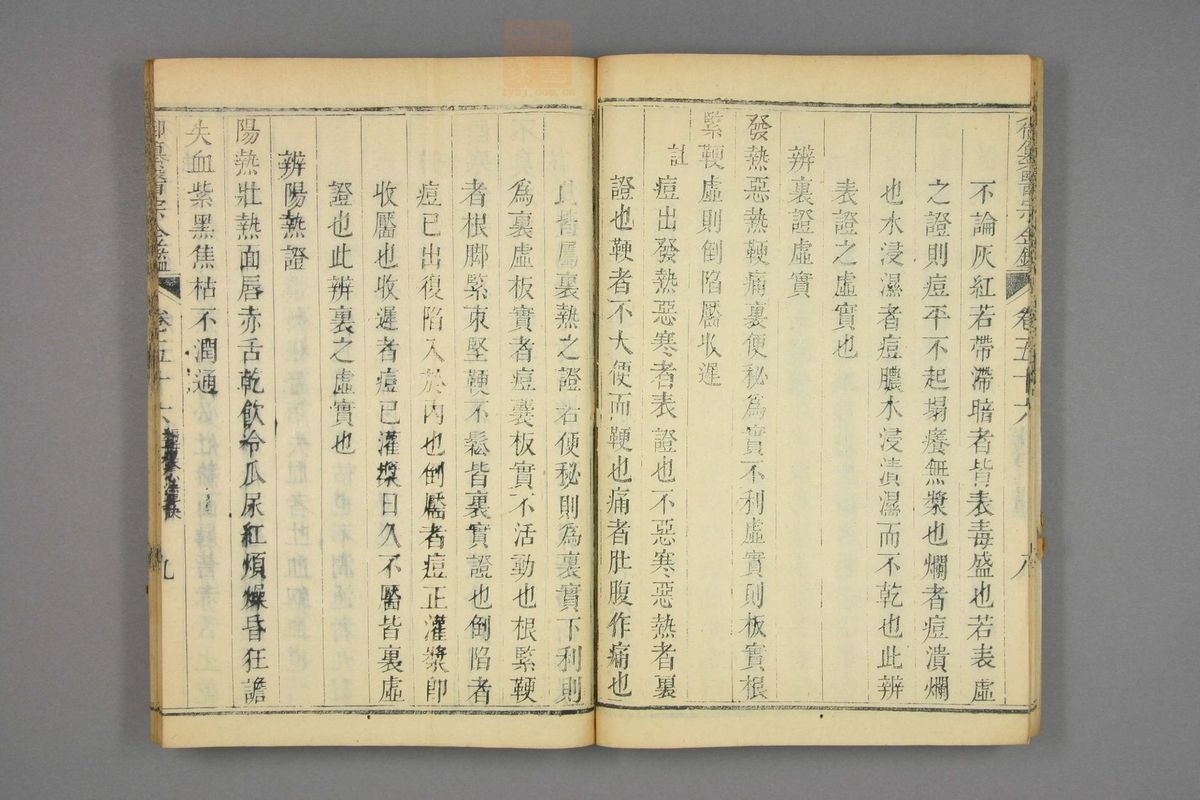 御纂醫宗金鑑 卷五十六 八
不論灰紅若帶滯暗者皆表毒盛也若表虛
之證則痘平不起塌癢無漿也爛者痘潰爛
也水浸濕者痘膿水浸漬濕而不乾也此辨
表證之虛實也
辨裏證虛實
發熱惡熱鞕痛裏便秘為實不利虛實則板實根
緊鞕虛則倒陷靨收遲
註
痘出發熱惡寒者表證也不惡寒惡熱者裏
證也鞕者不大便而鞕也痛者肚腹作痛也
此皆屬裏熱之證若便秘則為裏實下利則
為裏虛板實者痘囊板實不活動也根緊鞕
者根脚緊束堅鞕不鬆皆裏實證也倒陷者
痘已出復陷入於內也倒靨者痘正灌漿即
收靨也收遲者痘已灌漿日久不靨皆裏虛
證也此辨裏之虛實也
辨陽熱證
陽熱壯熱面唇赤舌乾飲冷瓜尿紅煩燥昏狂譫
失血紫黑焦枯不潤通
御纂醫宗金鑑 卷五十六 九